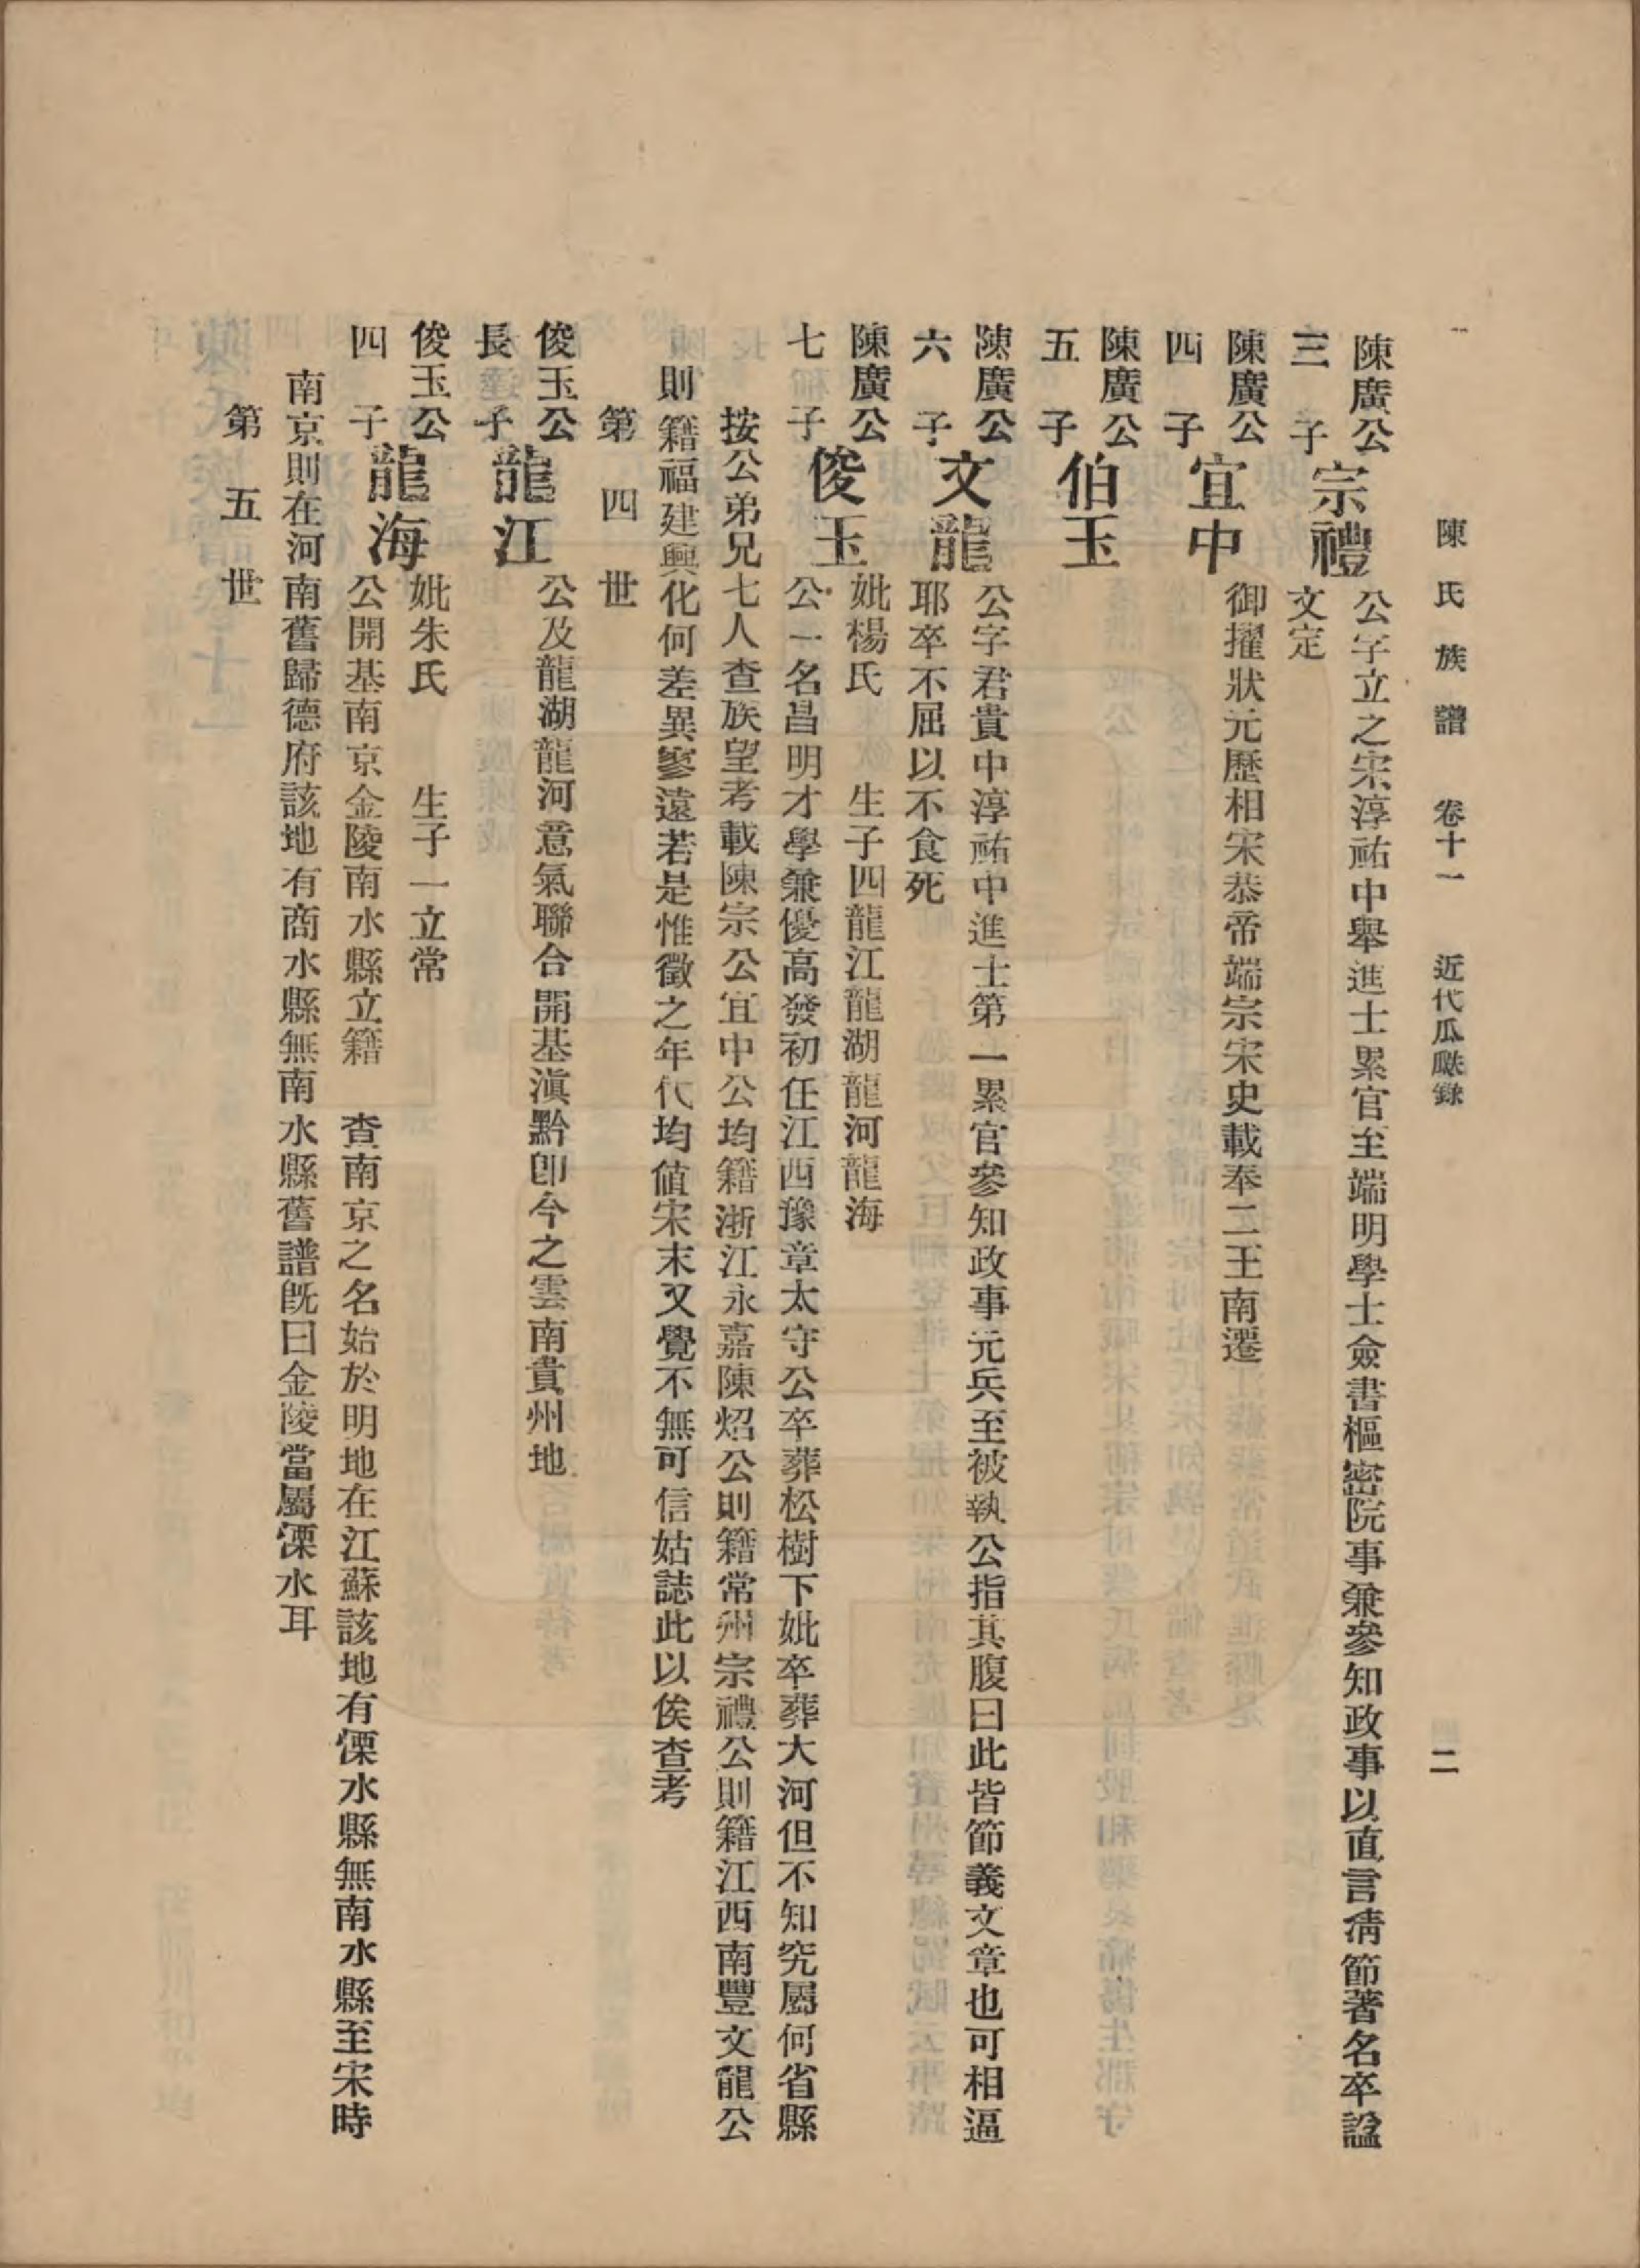 陳氏族譜　卷十一　近代瓜瓞錄　二
陳廣公三子　宗禮　公字立之宋淳祐中舉進士累官至端明學士僉書樞密院事兼參知政事以直言清節著名卒諡
文定
陳廣公四子　宜中　御擢狀元歷相宋恭帝端宗宋史載奉二王南遷
陳廣公五子　伯玉
陳廣公六子　文龍　公字君貴中淳祐中進士第一累官參知政事元兵至被執公指其腹曰此皆節義文章也可相逼
耶卒不屈以不食死
陳廣公七子　俊玉　妣楊氏　生子四龍江龍湖龍河龍海
公一名昌明才學兼優高發初任江西豫章太守公卒葬松樹下妣卒葬大河但不知究屬何省縣
按公弟兄七人查族望考載陳宗公宜中公均籍浙江永嘉陳炤公則籍常州宗禮公則籍江西南豐文龍公
則籍福建興化何差異寥遠若是惟徵之年代均值宋末又覺不無可信姑誌此以俟查考
第四世
俊玉公長子　龍江　公及龍湖龍河意氣聯合開基滇黔卽今之雲南貴州地
俊玉公四子　龍海　妣朱氏　生子一立常
公開基南京金陵南水縣立籍　查南京之名始於明地在江蘇該地有溧水縣無南水縣至宋時
南京則在河南舊歸德府該地有商水縣無南水縣舊譜旣曰金陵當屬溧水耳
第五世